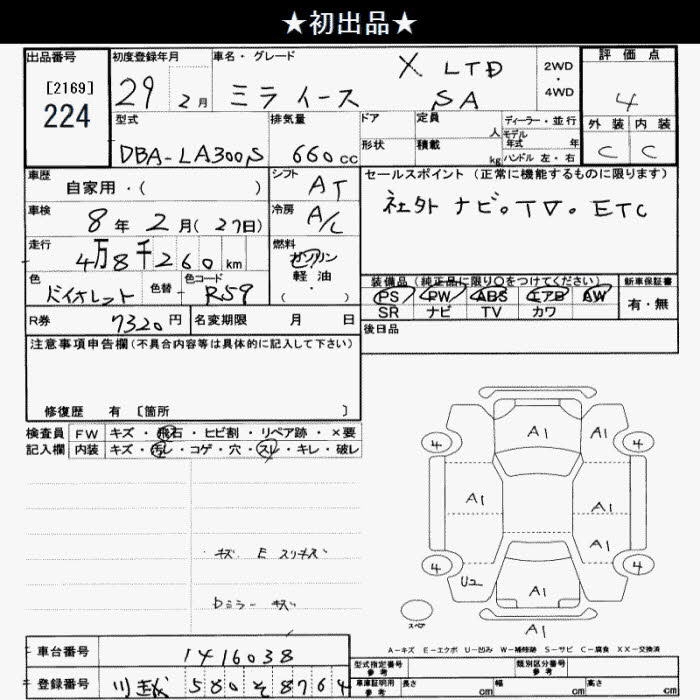 ★初出品★
出品番号 [2169] 224
初度登録年月 29年 2月
車名・グレード ミライース X LTD SA
2WD・4WD
評価点 4
外装 C 内装 C
型式 DBA-LA300S
排気量 660cc
ドア 形状
定員 人
積載 kg
ディーラー・並行
モデル年式 年
ハンドル 左・右
車歴 自家用・( )
シフト AT
セールスポイント (正常に機能するものに限ります)
社外 ナビ。TV。ETC
車検 8年 2月(27日)
冷房 A/C
走行 4万8千260km
燃料 ガソリン 軽油 (・)
色 バイオレット 色替 色コード R59
装備品 (純正品に限り○をつけてください)
PS PW ABS エアB AW
SR ナビ TV カワ
新車保証書 有・無
R券 7320円 名変期限 月 日
後日品
注意事項申告欄(不具合内容等は具体的に記入して下さい)
修復歴 有 〔箇所 〕
検査員 FW キズ・飛石・ヒビ割・リペア跡・×要
記入欄 内装 キズ・汚レ・コゲ・穴・スレ・キレ・破レ
A1 A1
4 4
A1 A1
A1
4 4
U2 A1
スペア
A1
キズ E スリキズ
Dミラー キズ
A-キズ E-エクボ U-凹み W-補修跡 S-サビ C-腐食 XX-交換済
車台番号 1416038
型式指定番号 参考
類別区分番号 参考
登録番号 580 そ 8764
車庫証明用 参考 長さ cm 幅 cm 高さ cm